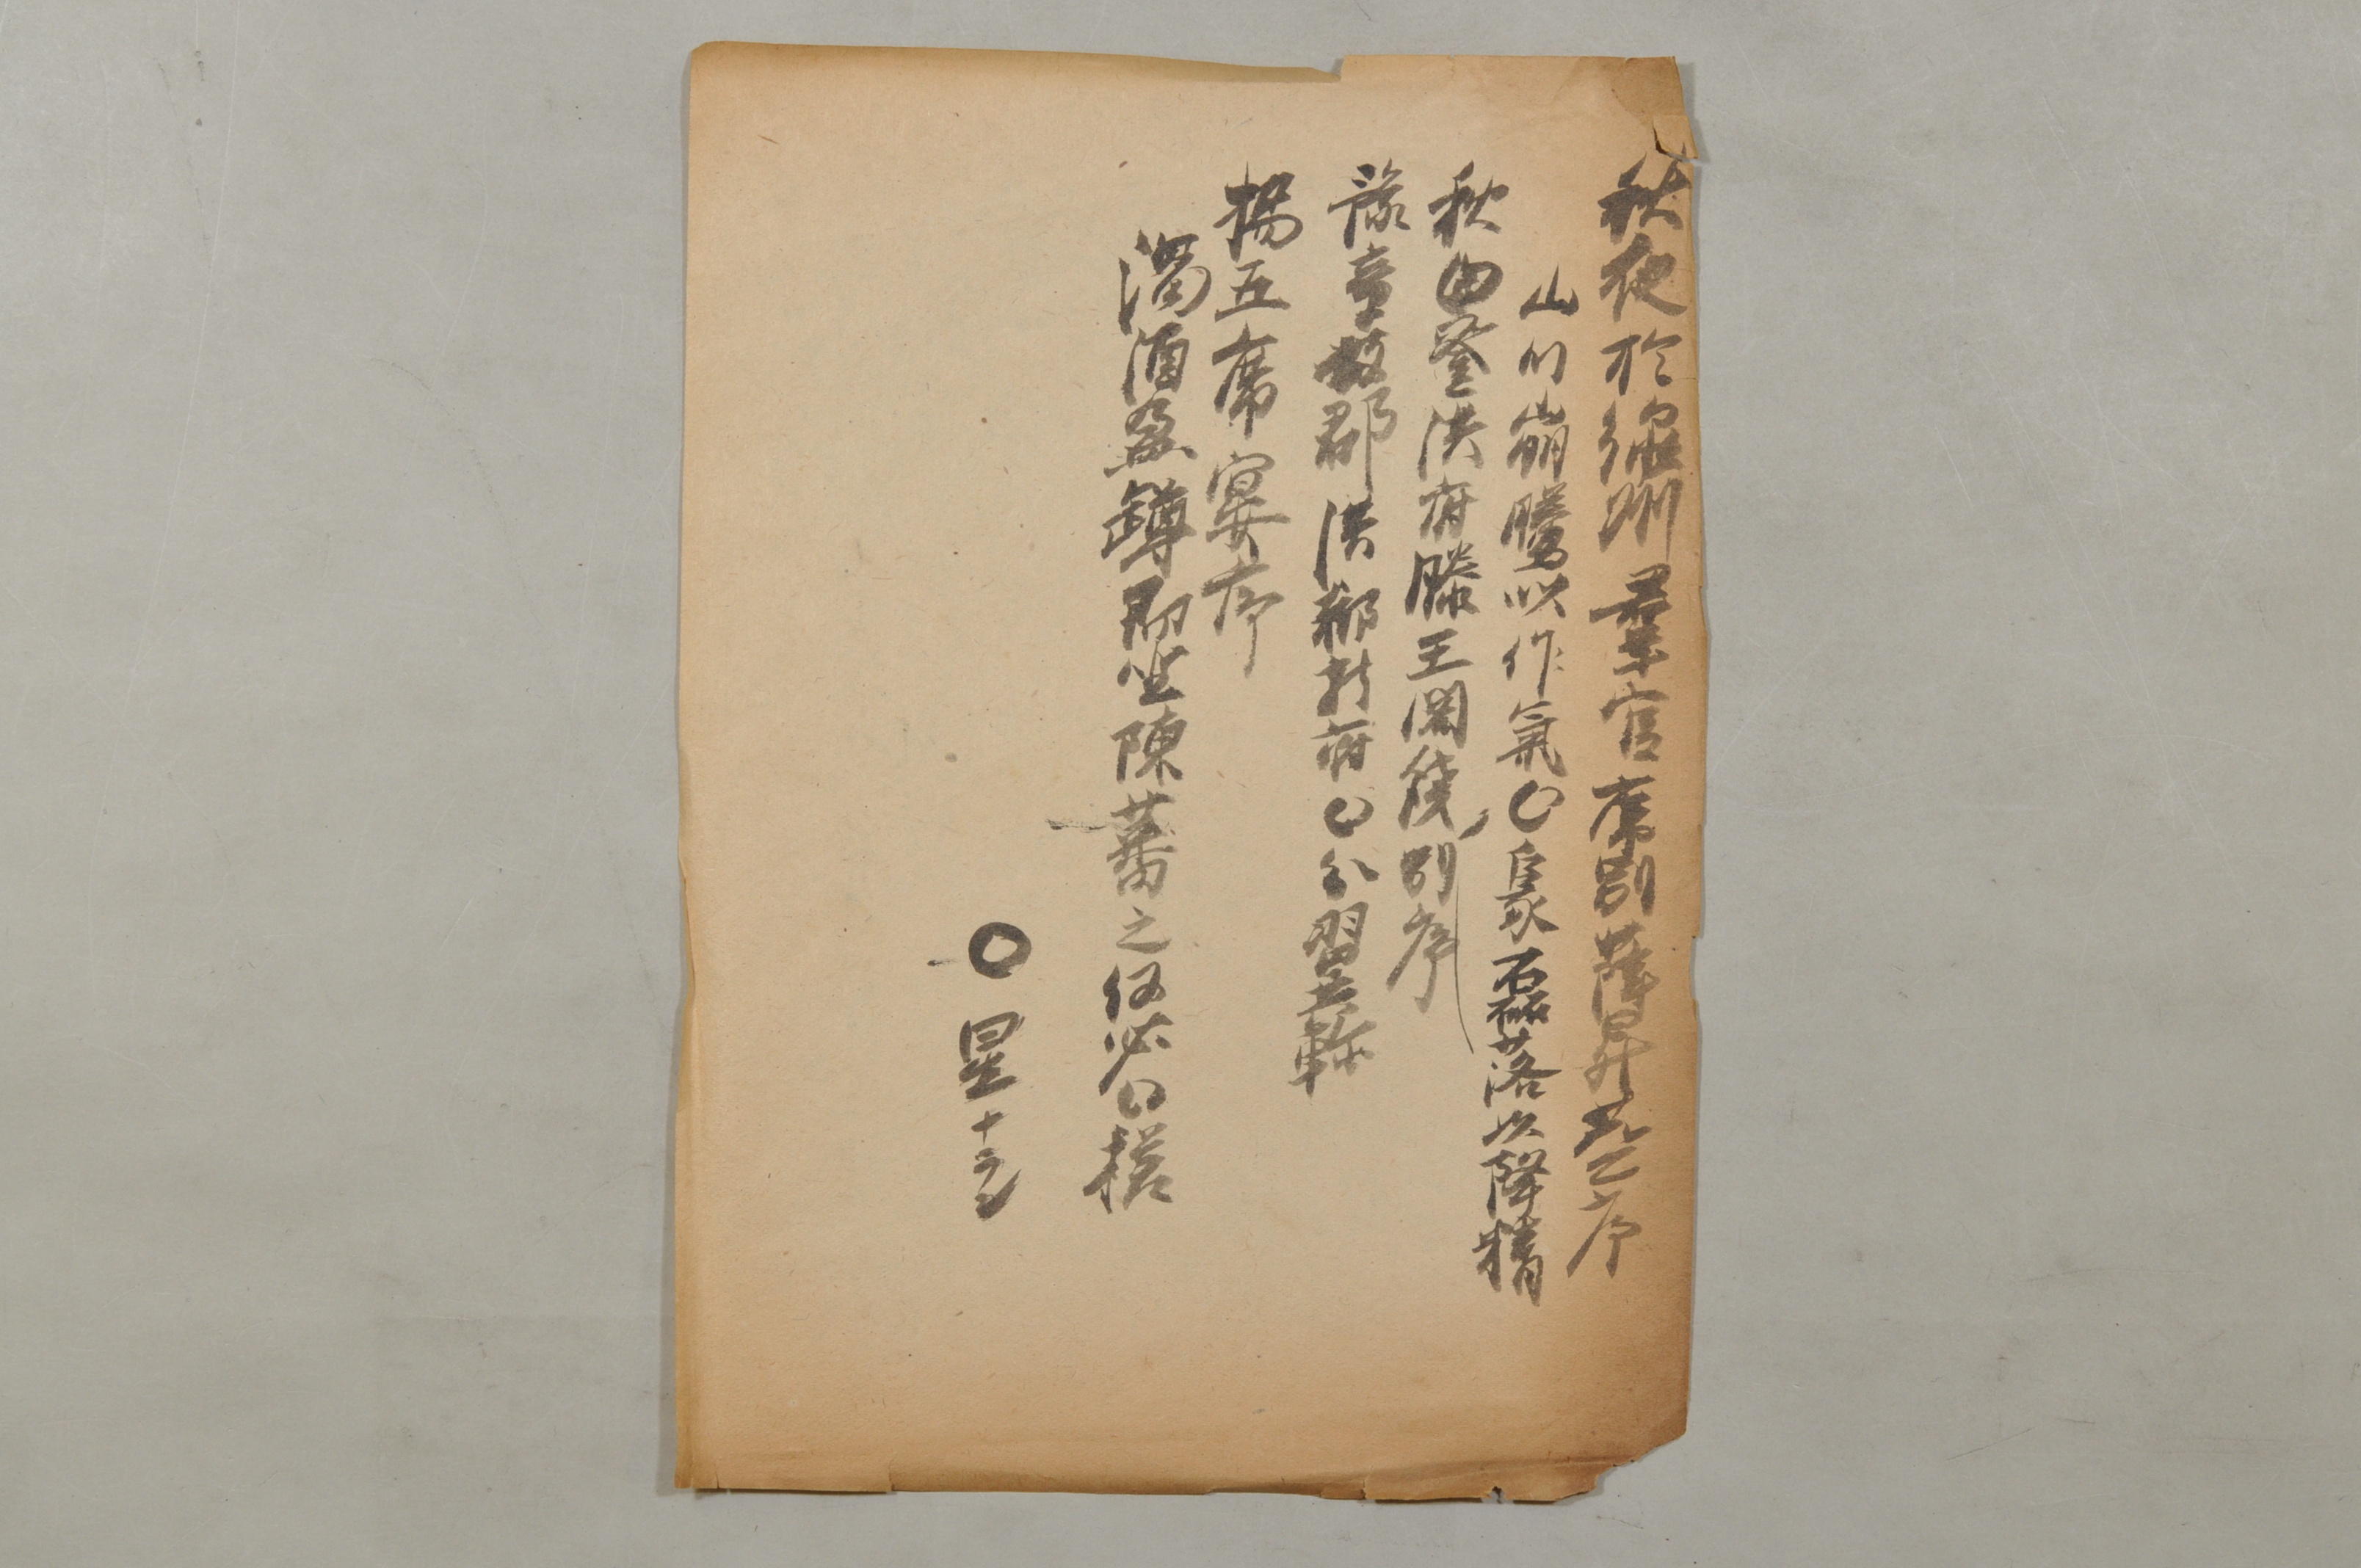 秋夜於綿州羣官席別薛昇華序
山川崩騰以作氣〇象磊落以降精
秋日登洪府滕王閣餞別序
豫章故郡洪都新府〇分翼軫
楊五席宴序
濁酒盈罇即坐陳蕃之必榻
〇星十